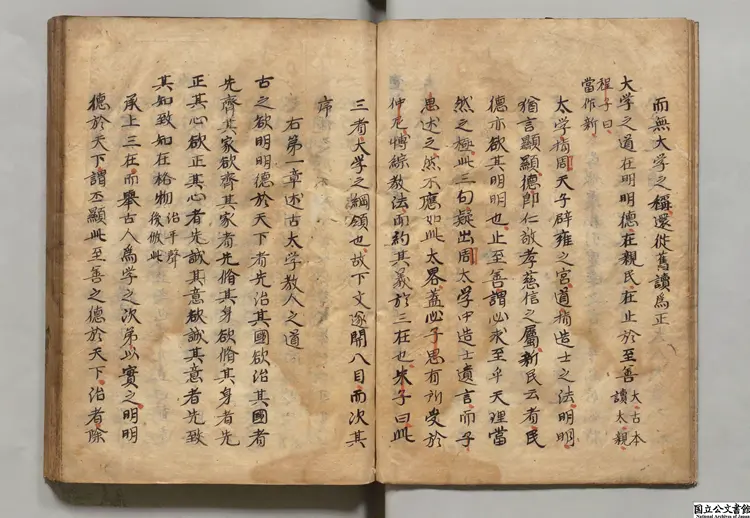 而無大学之稱還従舊讀爲正
大学之道在明明德在親民在止於至善 大古本
讀太親
程子曰
當作新
太学指周天子辟雍之宮道指造士之法明明
猶言顯顯德即仁敬孝慈信之屬新民云者民
德亦欲其明明也止至善謂心求至乎天理當
然之極此三句疑出周太学中造士遺言而子
思述之然不應如此太畧蓋必子思有所受於
仲尼博綜教法而約其義於三在也朱子曰此
三者大学之綱領也故下文遂開八目而次其
序
右第一章述古大学教人之道
古之欲明明德於天下者先治其國欲治其國者
先齊其家欲齊其家者先脩其身欲脩其身者先
正其心欲正其心者先誠其意欲誠其意者先致
其知致知在格物 治平聲
後倣此
承上三在而舉古人爲学之次第以實之明明
德於天下謂丕顯此至善之德於天下治者除
国立公文書館
National Archives of Japan